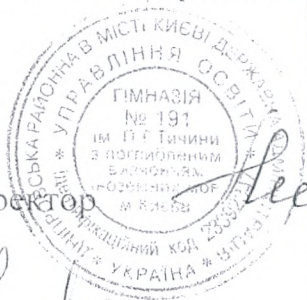 ДНІПРОВСЬКА РАЙОННА В МІСТІ КИЄВІ ДЕРЖАВНА
УПРАВЛІННЯ ОСВІТИ
ГІМНАЗІЯ
№ 191
ім. П.Г. Тичини
з поглибленим
вивченням
іноземних мов
м. Києва
код
* УКРАЇНА *
ректор